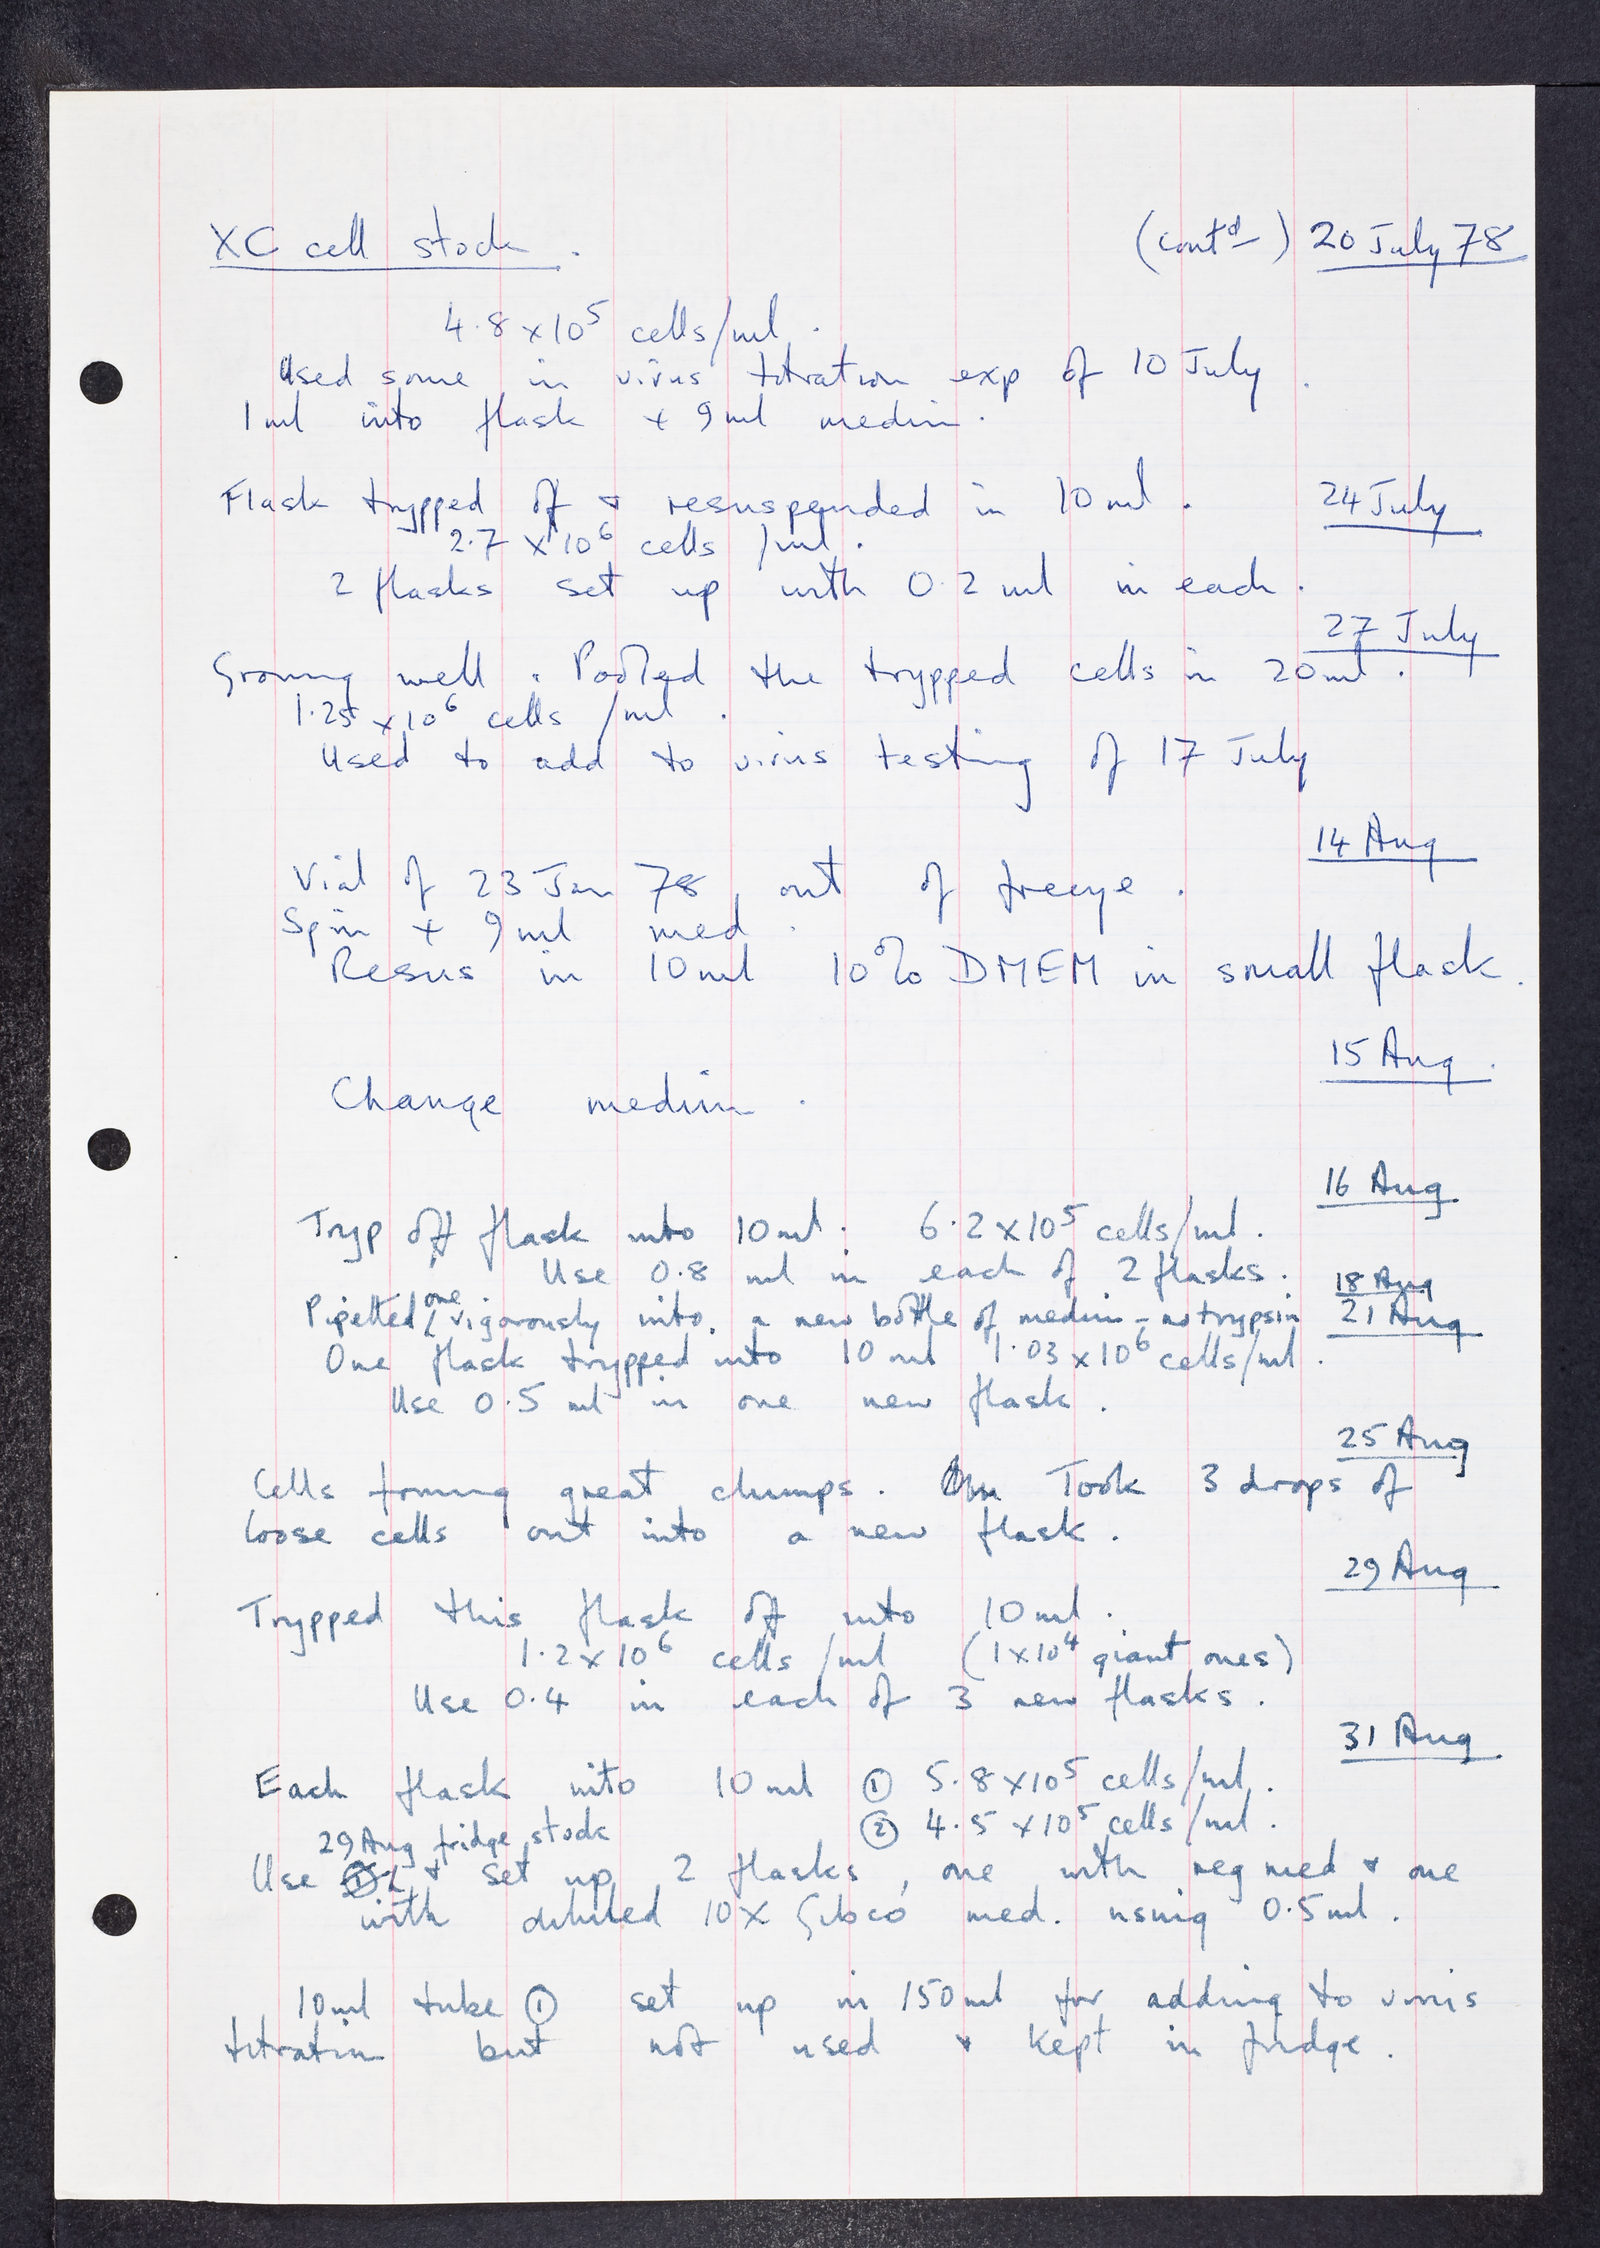 XC cell stock. (contd) 20 July 78
4.8 x 10⁵ cells/ml.
Used some in virus titration exp of 10 July.
1 ml into flask + 9 ml medium.
Flask trypped off & resuspended in 10 ml. 24 July
2.7 x 10⁶ cells /ml.
2 flasks set up with 0.2 ml in each.
27 July
Growing well. Pooled the trypped cells in 20 ml.
1.25 x 10⁶ cells /ml.
Used to add to virus testing of 17 July
14 Aug
Vial of 23 Jan 78, out of freeze.
Spin + 9 ml med.
Resus in 10 ml 10% DMEM in small flask.
15 Aug.
Change medium.
16 Aug
Tryp off flask into 10 ml. 6.2 x 10⁵ cells/ml.
Use 0.8 ml in each of 2 flasks.
18 Aug
Pipetted one vigorously into a new bottle of medium - no trypsin
21 Aug
One flask trypped into 10 ml 1.03 x 10⁶ cells/ml.
Use 0.5 ml in one new flask.
25 Aug
Cells forming great clumps. Took 3 drops of
loose cells out into a new flask.
29 Aug
Trypped this flask off into 10 ml.
1.2 x 10⁶ cells /ml (1 x 10⁴ giant ones)
Use 0.4 in each of 3 new flasks.
31 Aug
Each flask into 10 ml ① 5.8 x 10⁵ cells/ml.
② 4.5 x 10⁵ cells/ml.
29 Aug fridge stock
Use & set up 2 flasks, one with reg med & one
with diluted 10X Gibco med. using 0.5 ml.
10 ml tube ① set up in 150 ml for adding to virus
titration but not used & kept in fridge.